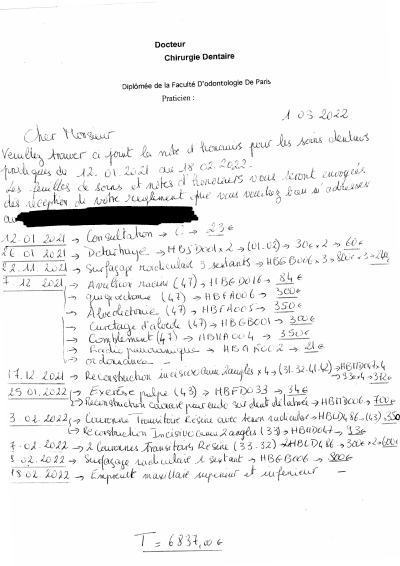 Docteur
Chirurgie Dentaire
Diplômée de la Faculté D'odontologie De Paris
Praticien :
1 03 2022
Cher Monsieur
Veuillez trouver ci joint la note d'honoraires pour les soins dentaires
prodigués du 12.01.2021 au 18.02.2022.
Les feuilles de soins et notes d'honoraires vous seront envoyées
dès réception de votre règlement que vous voudrez bien m'adresser
au
12-01 2021 → Consultation → C → 23€
26 01 2021 → Détartrage → HBJD001 x 2 → (01.02) → 30€ x 2 → 60€
22.11.2021 → Surfaçage radiculaire 3 sextants → HBGB006 x 3 → 800€ x 3 →
7 12 2021 → Avulsion racine (47) → HBGD016 → 84€
→ gingivectomie (47) → HBFA006 → 300€
→ Alvéolectomie (47) → HBFA005 → 350€
→ Curetage d'alvéole (47) → HBGB001 → 300€
→ Complément (47) → → 350€
→ Radio panoramique → HBQK002 → 21€
→ ordonnance —
17.12 2021 → Reconstruction incisive canine 2 angles x 4 (31.32.41.42) → HBMD047 x 4
→ 93€ x 4 → 372€
25 01.2022 → Exérèse pulpe (43) → HBFD033 → 34€
→ Reconstruction coronaire sur dent délabrée → → 700€
3 02.2022 → Couronne Transitoire Résine avec tenon radiculaire → HBLD486 → (43) 350
→ Reconstruction Incisive canine 2 angles (33) → HBMD047 → 93€
7-02-2022 → 2 Couronnes Transitoires Résine (33.32) → HBLD486 → 300€ x 2 → 600€
8 02.2022 → Surfaçage radiculaire 1 sextant → HBGB006 → 800€
18 02.2022 → Empreinte maxillaire supérieur et inférieur —
T = 6837,00 €